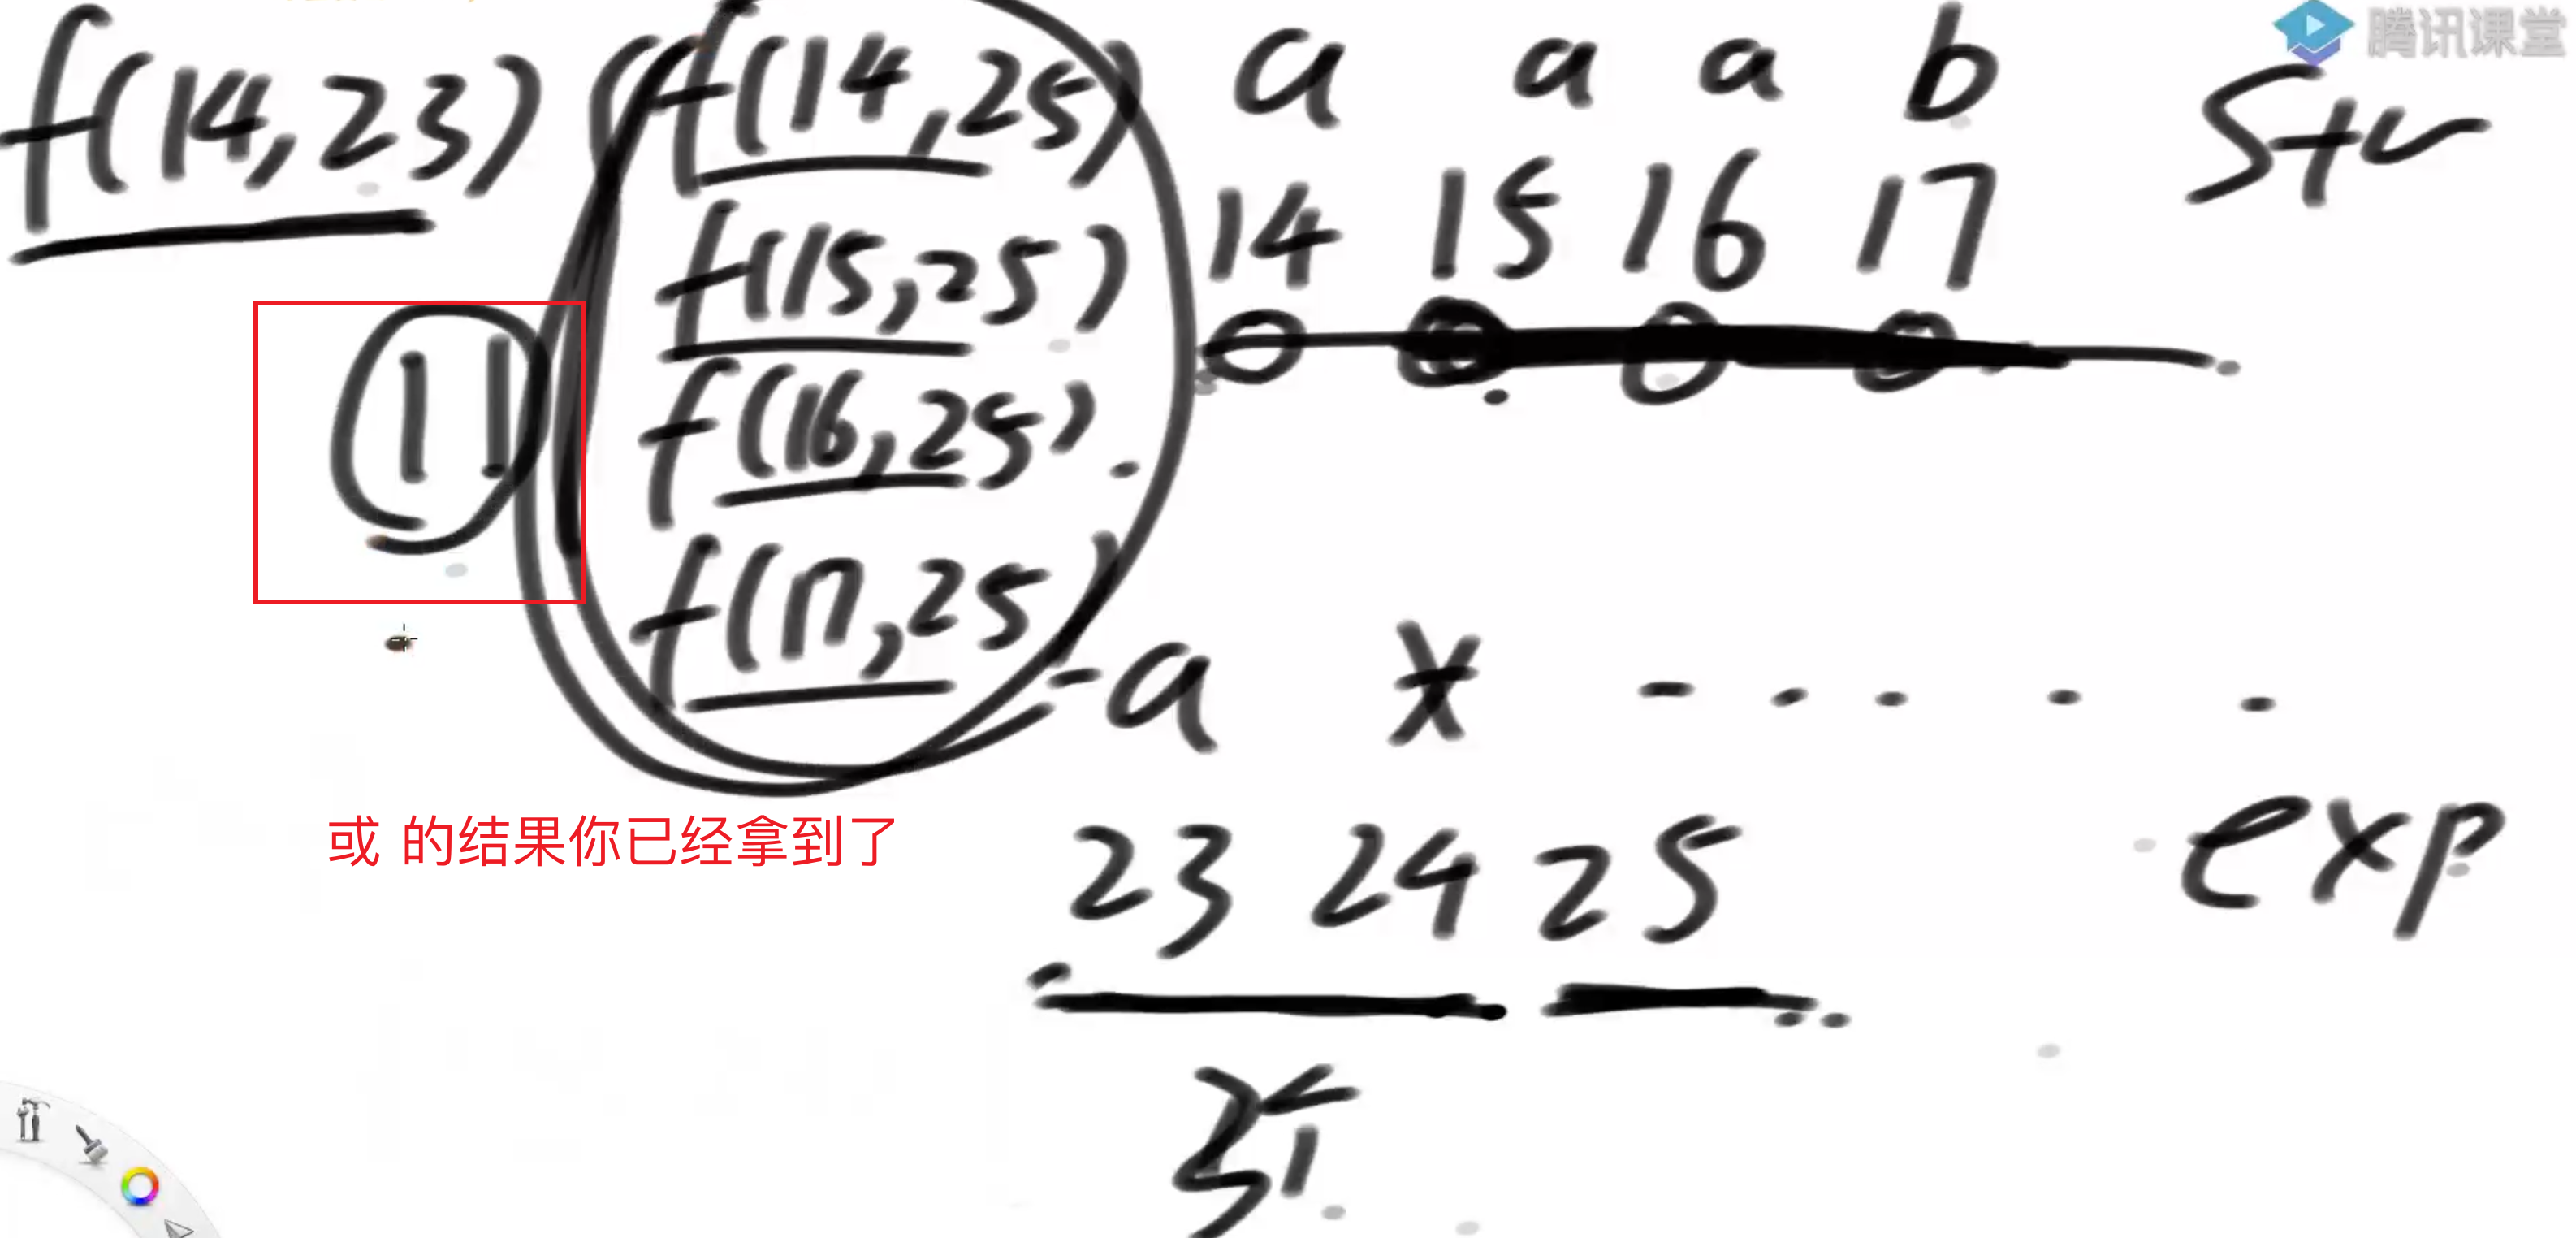 腾讯课堂
f(14,23)
f(14,25)
f(15,25)
f(16,25)
f(17,25)
a a a b
14 15 16 17
str
||
a * - . . . .
23 24 25
exp
或 的结果你已经拿到了